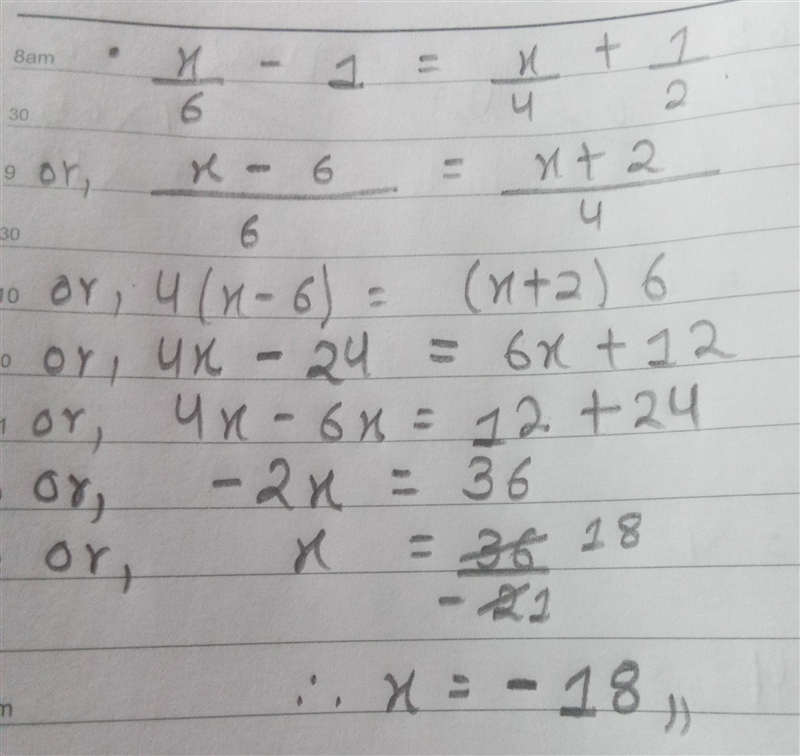 8am · x/6 - 1 = x/4 + 1/2
30
9 or, x - 6/6 = x + 2/4
30
10 or, 4(x - 6) = (x+2) 6
0 or, 4x - 24 = 6x + 12
1 or, 4x - 6x = 12 + 24
or, -2x = 36
or, x = 36 18/-2 1
∴ x = -18 ,,
m